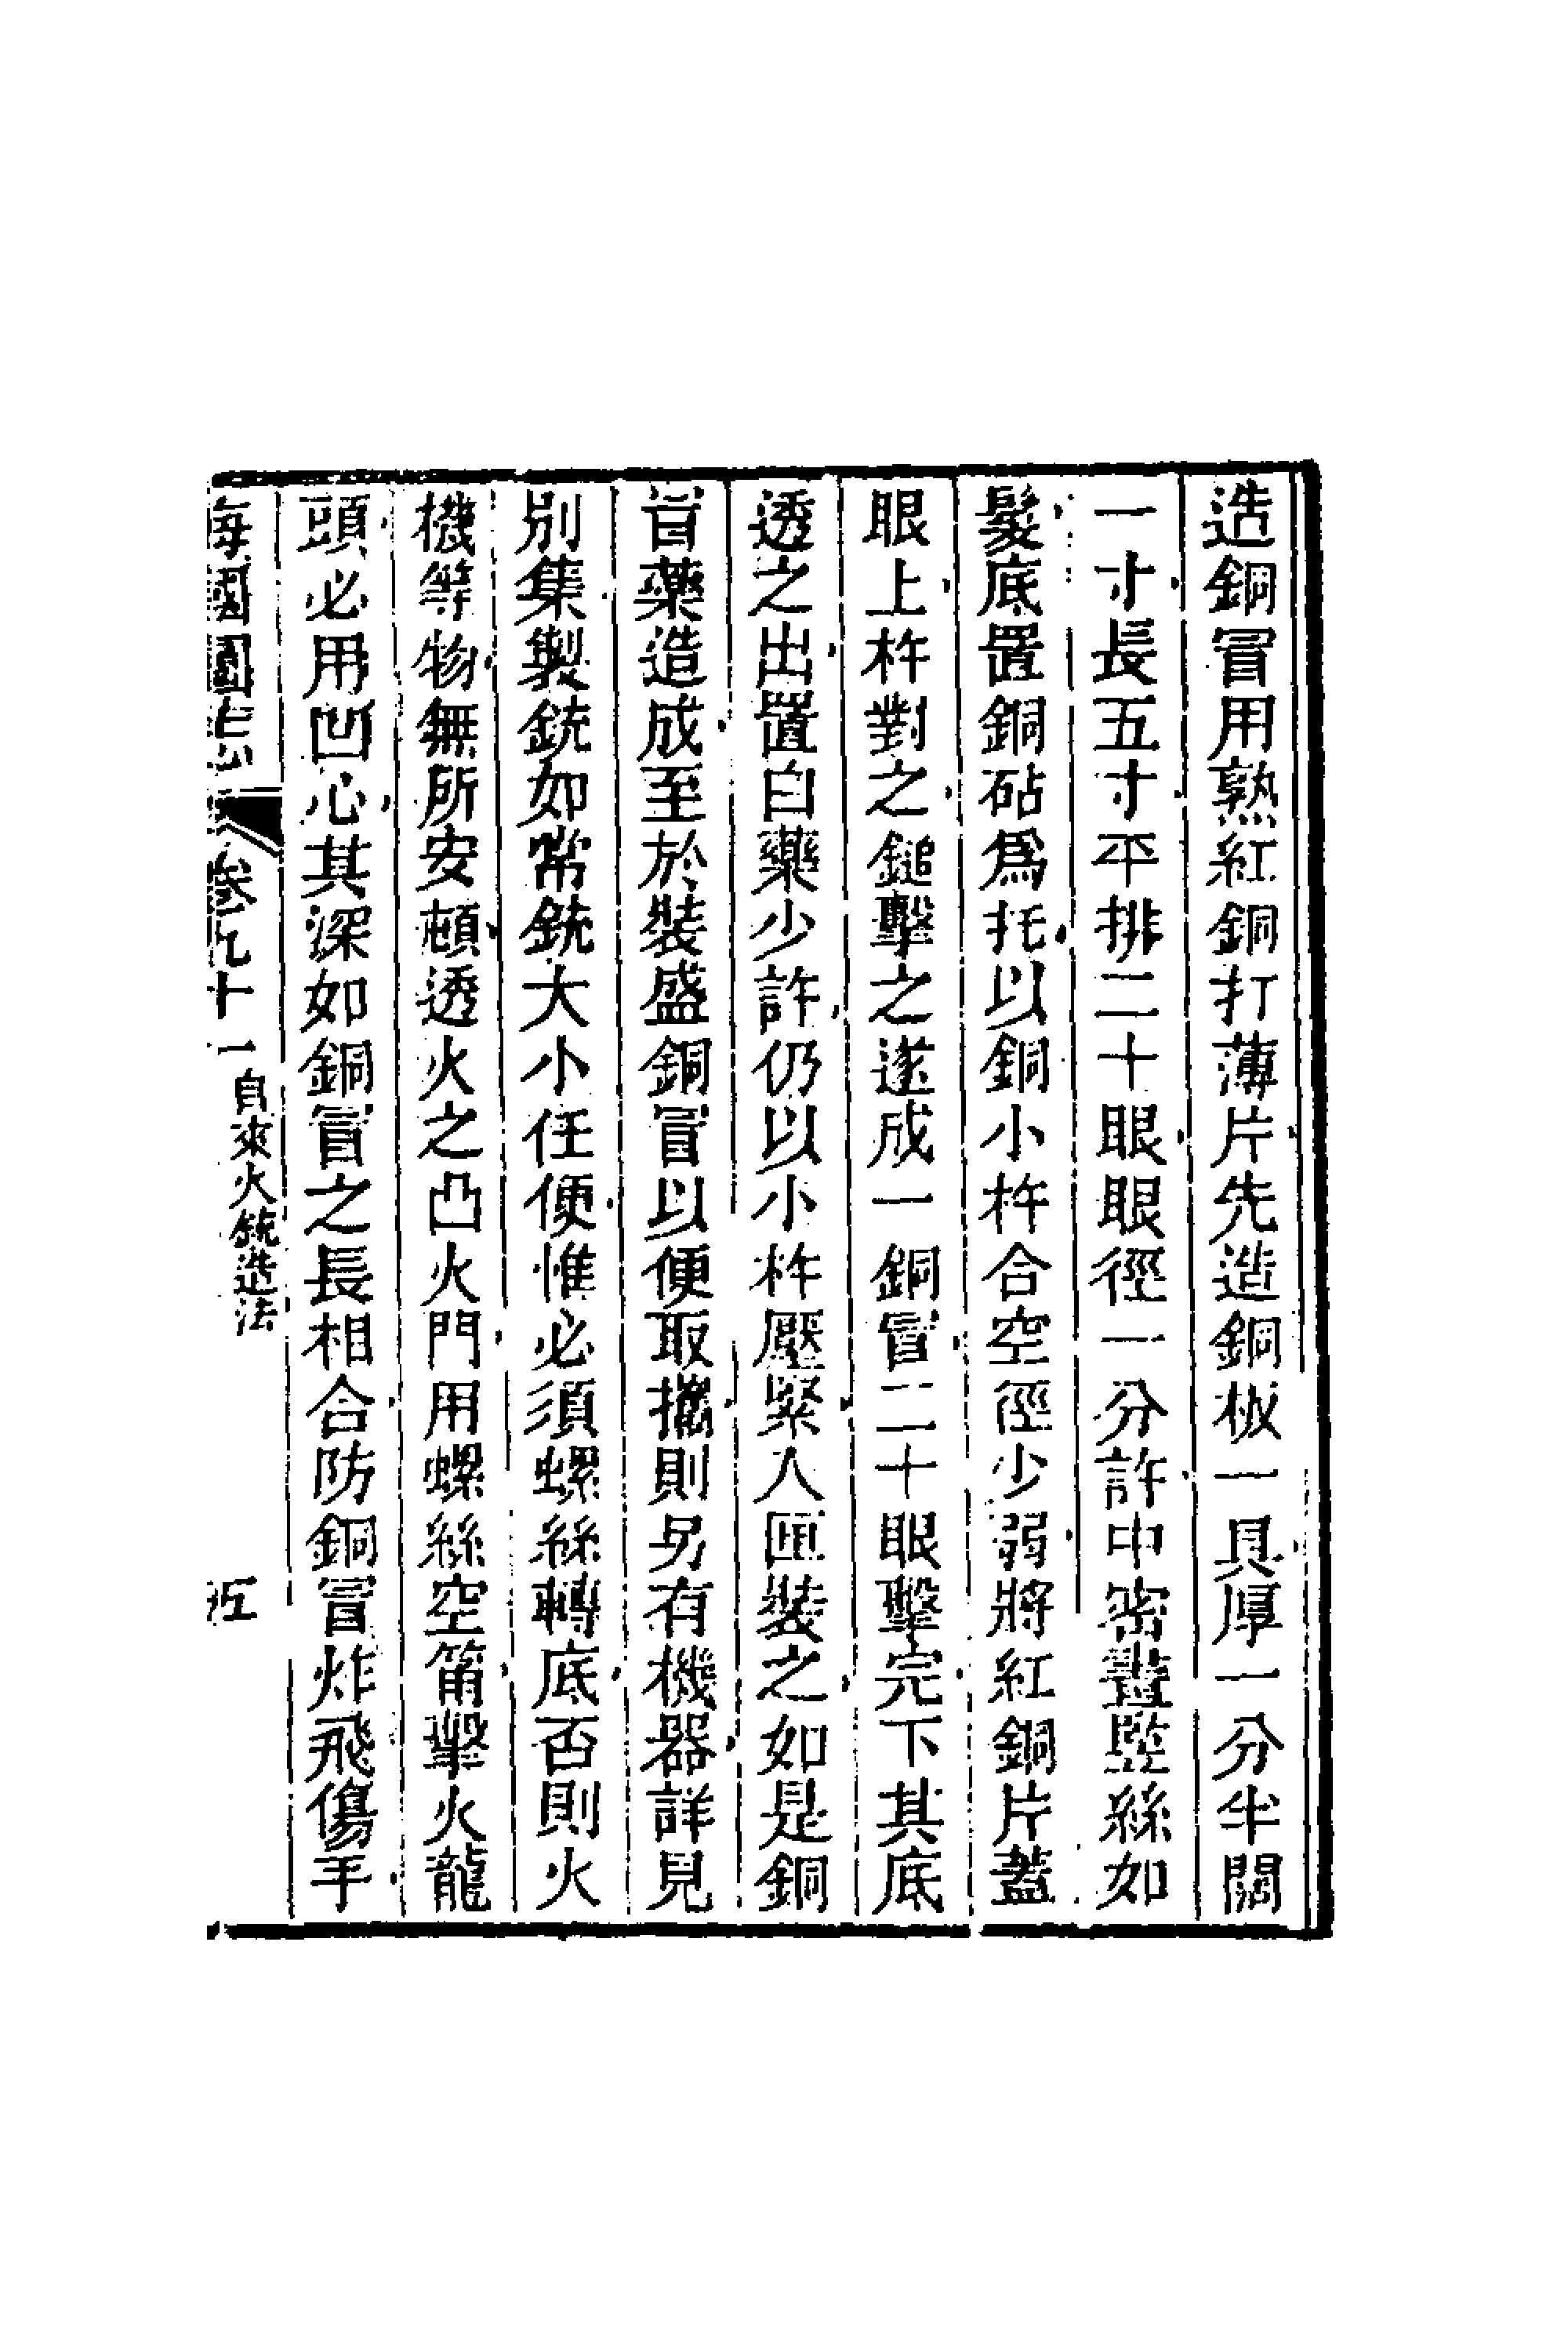 造銅冒用熟紅銅打薄片先造銅板一具厚一分半闊
一寸長五寸平排二十眼眼徑一分許中密豎豎絲如
髮底置銅砧爲托以銅小杵合空徑少弱將紅銅片蓋
眼上杵對之鎚擊之遂成一銅冒二十眼擊完下其底
透之出置白藥少許仍以小杵壓緊入匣裝之如是銅
冒藥造成至於裝盛銅冒以便取攜則另有機器詳見
別集製銃如常銃大小任便惟必須螺絲轉底否則火
機等物無所安頓透火之凸火門用螺絲空筩擊火龍
頭必用凹心其深如銅冒之長相合防銅冒炸飛傷手
海國圖志 卷九十一 自來火銃造法 五